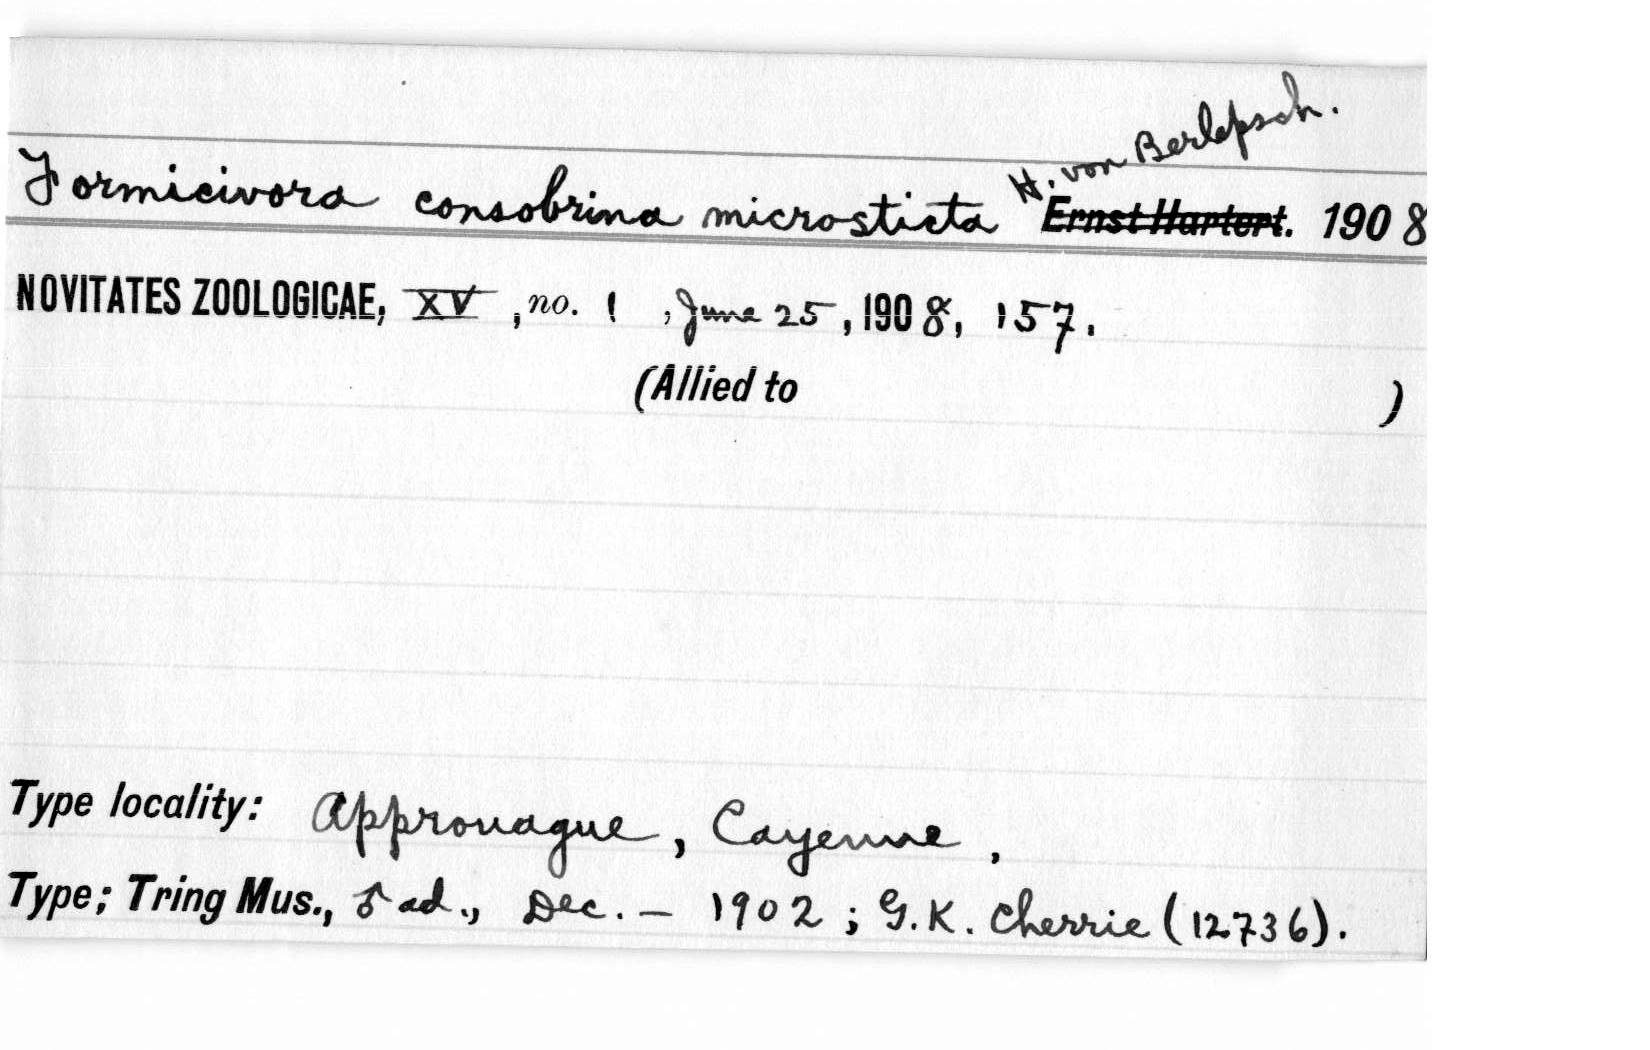 H. von Berlepsch.
Formicivora consobrina microsticta Ernst Hartert. 1908
NOVITATES ZOOLOGICAE, XV, no. 1, June 25, 1908, 157.
(Allied to )
Type locality: Approuague, Cayenne,
Type; Tring Mus., ♂ ad., Dec. – 1902; G.K. Cherrie (12736).